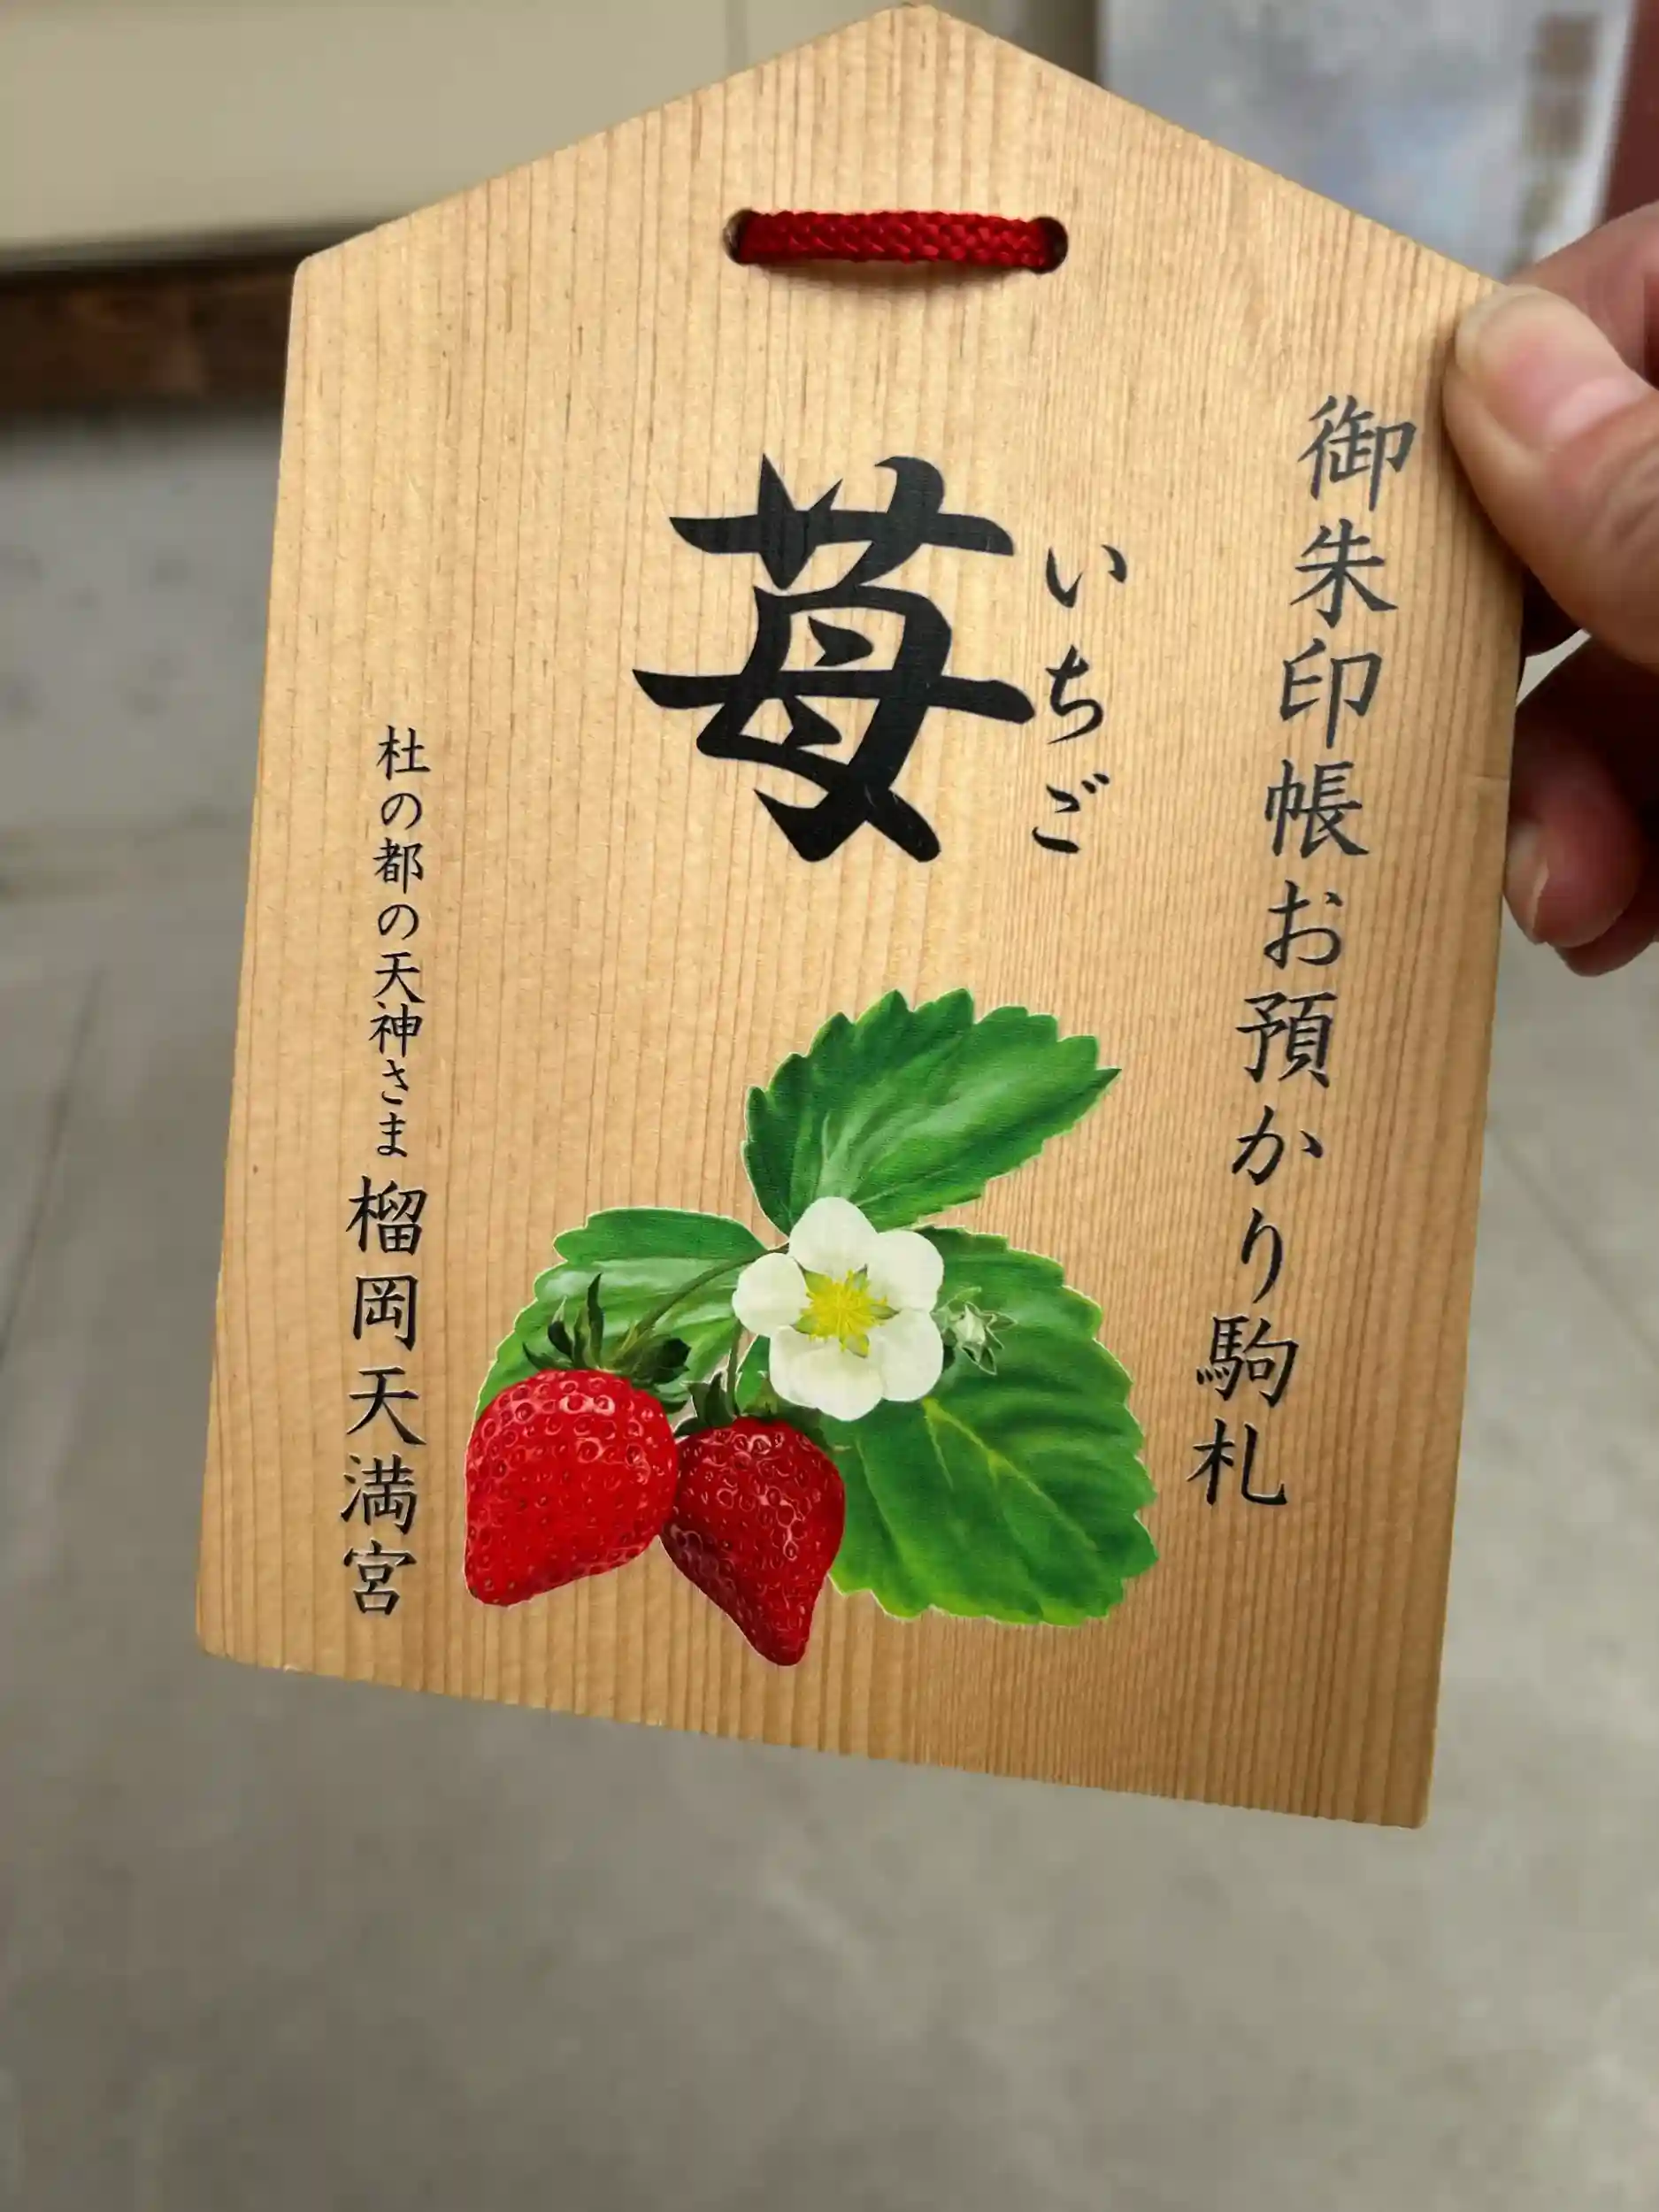 御朱印帳お預かり駒札
いちご
苺
杜の都の天神さま 榴岡天満宮